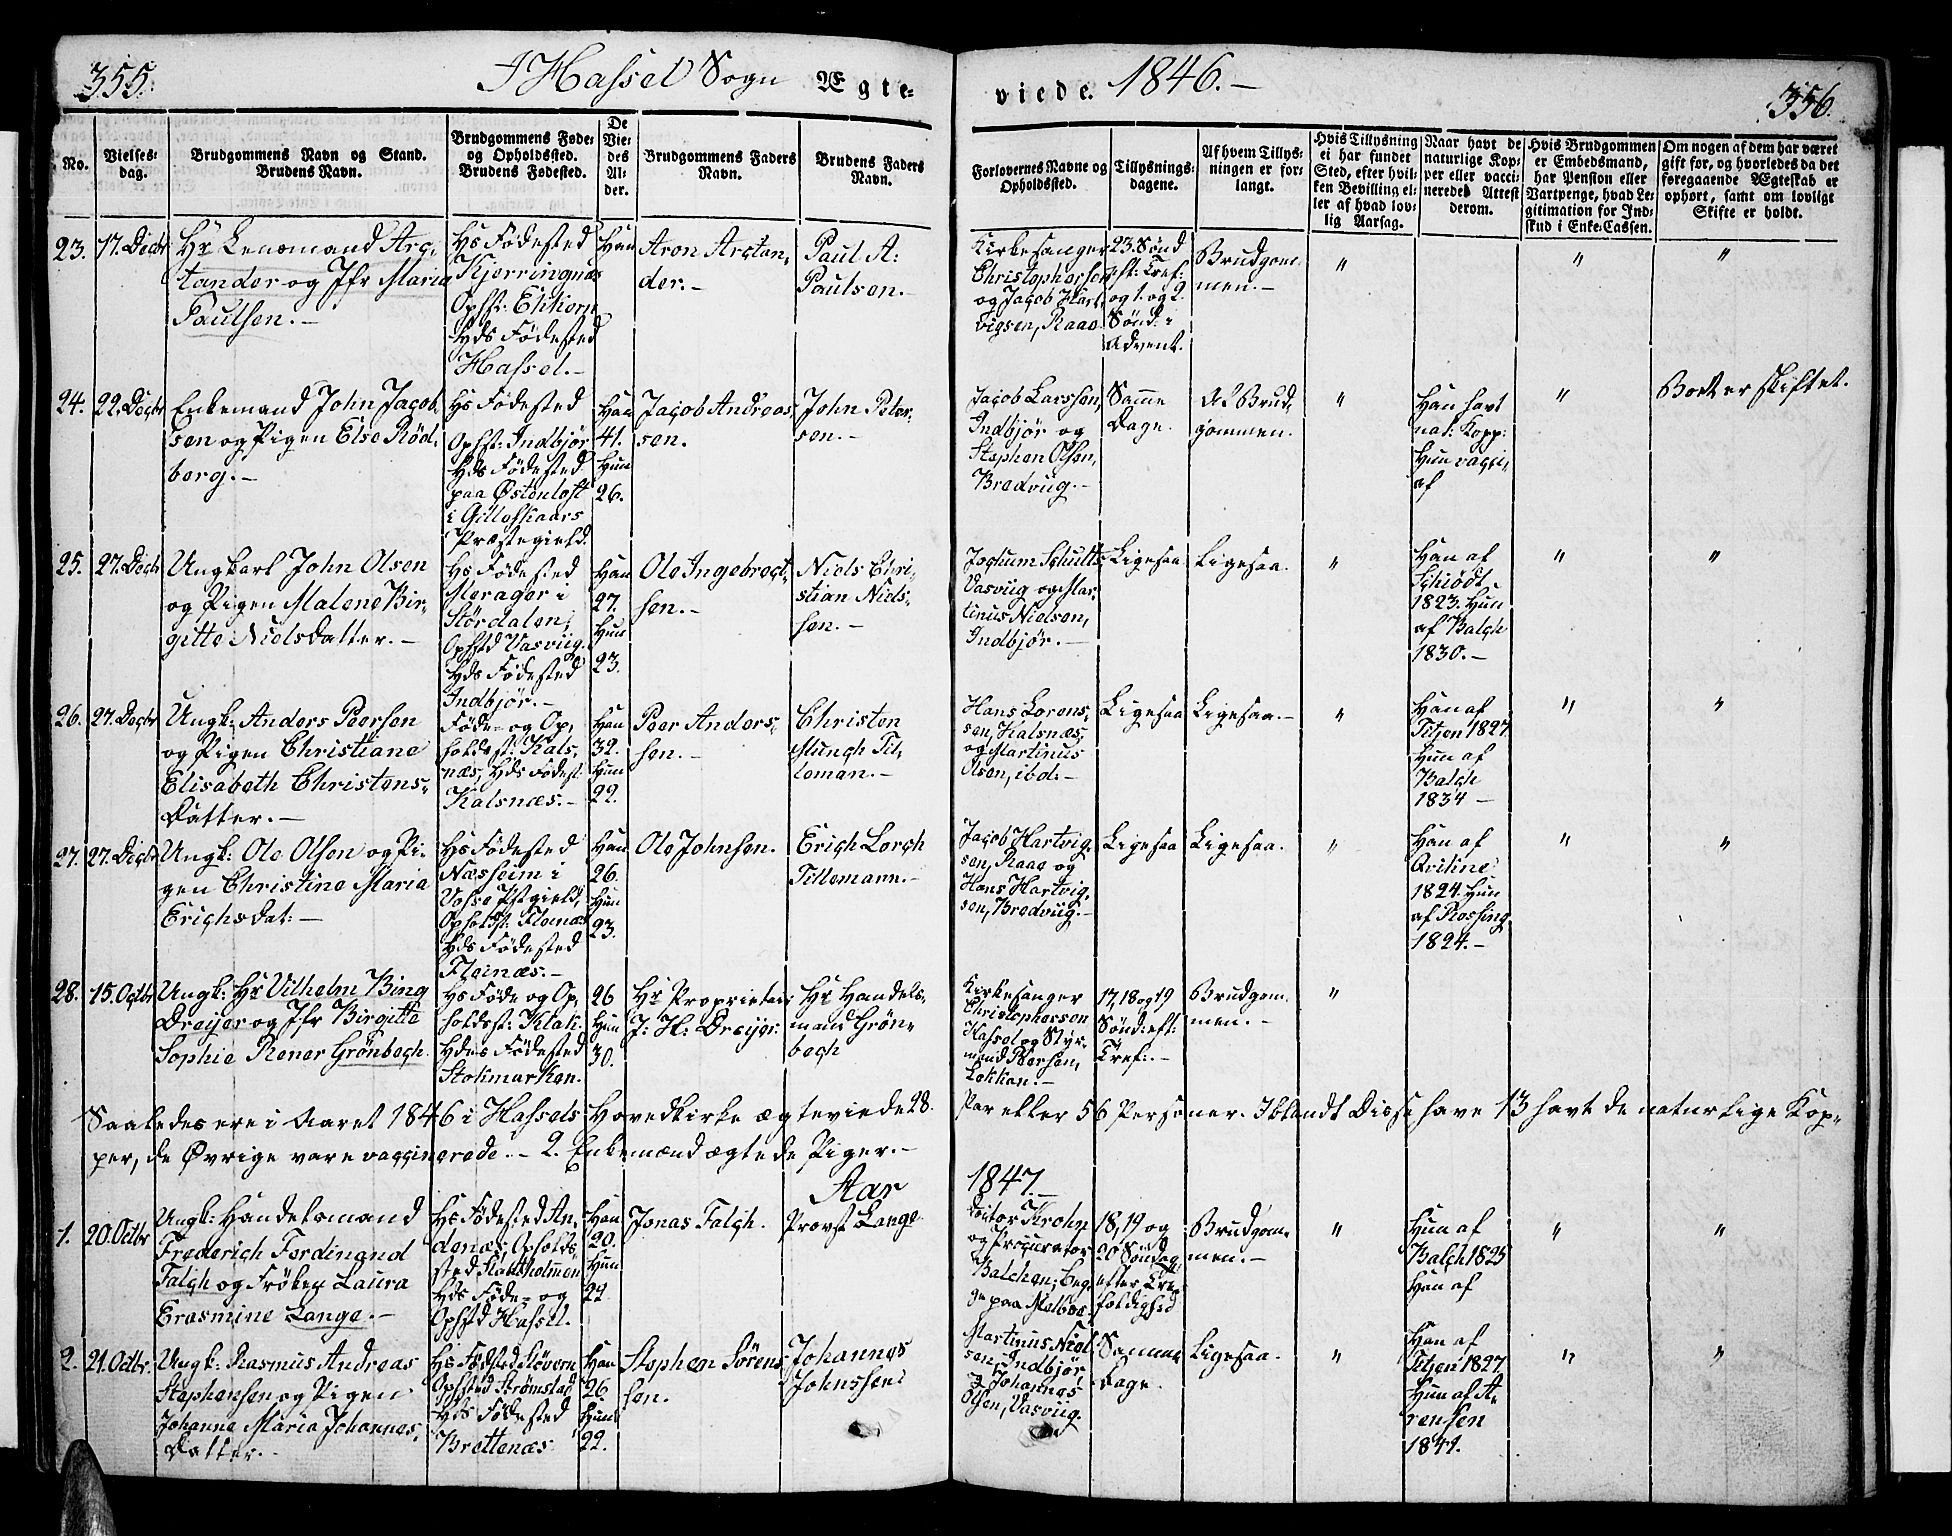 355.
I Hassel Sogn Ægte-
viede. 1846.-
356.
No.
Vielses-
dag.
Brudgommens Navn og Stand.
Brudens Navn.
Brudgommens Føde-
og Opholdssted.
Brudens Fødested.
De
Vie-
des
Al-
der.
Brudgommens Faders
Navn.
Brudens Faders
Navn.
Forlovernes Navne og
Opholdssted.
Tillysnings-
dagene.
Af hvem Tillys-
ningen er for-
langt.
Hvis Tillysning
ei har fundet
Sted, efter hvil-
ken Bevilling el-
ler af hvad lov-
lig Aarsag.
Naar havt de
naturlige Kop-
per eller vacci-
nerede, Attest
derom.
Hvis Brudgommen
er Embedsmand,
har Pension eller
Vartpenge, hvad Le-
gitimation for Ind-
skud i Enke-Cassen.
Om nogen af dem har været
gift før, og hvorledes da det
foregaaende Ægteskab er
ophørt, samt om lovligt
Skifte er holdt.
23.
17. Decbr
Hr Lensmand Arc-
tander og Jfr Maria
Paulsen.-
Hs Fødested
Kjerringnæs
Ophst:
Hds Fødested
Hassel.-
Han
Aron Arctan-
der.-
Paul A:
Paulsen.
Kirkesanger
Christophersen
og Jacob Hart-
vigsen, Raao
23. Sønd
eft: Tref:
og 1. og 2.
Sønd: i
Advent.
Brudgom-
men.-
"
"
"
24.
22. Decbr
Enkemand John Jacob
sen og Pigen Else Rød-
berg.-
Hs Fødested
Ophst: Indbjør
Hds Fødested
paa Østenloft
i Gilleskaars
Præstegield.
Han
41.
Hun
26.
Jacob Andreas-
sen.
John Peter-
sen.-
Jacob Larssen,
Indbjør og
Stephen Olsen,
Bredviig.-
Samme
Dage.
Af Brud-
gommen.
"
Han havt
nat: Kopp:
Hun vacci-
af
"
Boet er skiftet.
25.
27. Decbr
Ungkarl John Olsen
og Pigen Malene Bir-
gitte Nielsdatter.-
Hs Fødested
Merager i
Størdalen,
Ophsted Vasviig.
Hds Fødested
Indbjør.-
Han
27.
Hun
23.
Ole Ingebrect-
sen.-
Niels Chri-
stian Niels-
sen.-
Jochum Schults
Vasviig og Mar-
tinus Nielsen,
Indbjør.-
Ligesaa
Ligesaa.
"
Han af
Schiødt
1823. Hun
af Balch
1830.-
"
"
26.
27. Decbr
Ungk: Anders Peersen
og Pigen Christiane
Elisabeth Christens-
Datter.-
Føde- og Op-
holdst: Kals-
næs, Hds Fødest:
Kalsnæs.-
Han
32.
Hun
22.
Peer Anders-
sen.-
Christen
Munch Til-
leman.-
Hans Lorens-
sen, Kalsnæs,
og Martinus
Olsen, ibd.-
Ligesaa
Ligesaa.-
"
Han af
Tetzen 1827
Hun af
Balch
1834-
"
"
27.
27. Decbr
Ungk: Ole Olsen og Pi-
gen Christine Maria
Erichsdat:-
Hs Fødested
Næsheim i
Vosse Pstgield,
Opholdst: Fleinæs
Hds Fødested
Fleinæs.-
Han
26.
Hun
23.
Ole Johnsen.
Erich Lorch
Tillemann.-
Jacob Hartvig-
sen, Raao og
Hans Hartvig-
sen, Bredviig.-
Ligesaa
Ligesaa.
"
Han af
1824. Hun
af Rossing
1824.-
"
"
28.
15. Octbr
Ungk: Hr Vilhelm Bing
Dreijer og Jfr Birgitte
Sophie Rener Grønbech.
Hs Føde og Op-
holdst: Klak-
Hdes Fødested
Stokmarken.
26
Hun
30.
Hr Proprietair
J: H: Dreijer.
Hr Handels-
mand Grøn-
bech
Kirkesanger
Christophersen
Hassel og Styr-
mand Peersen,
Løkken.-
17, 18 og 19
Sønd: eft:
Tref:-
Brudgom-
men.-
"
Saaledes ere i Aaret 1846 i Hassels Hovedkirke ægteviede 28. Par eller 56 Personer. Iblandt Disse have 13 havt de naturlige Kop-
per, de Øvrige vare vaccinerede.- 2. Enkemænd ægtede Piger.-
Aar 1847.-
1.
20. Octbr
Ungk: Handelsmand
Frederich Ferdinand
Falch og Frøken Laura
Erasmine Lange.-
Hs Fødested An-
denæs, Opholds-
sted
Hds Føde- og
Ophsted Hassel.
Han
20.
Hun
24
Jonas Falch.
Provst Lange
Doctor Krohn
og Procurator
Balchen, Beg-
ge paa Melboe.
18, 19 og
20 Søndag
efter Tre-
foldighed
Brudgom-
men.-
"
Hun af
Balch 1825
Han af
"
"
2.
21. Octbr.
Ungk: Rasmus Andreas
Stephensen og Pigen
Johanne Maria Johannes-
Datter.-
Hs Fødested
Ophsted Strømstad
Hds Fødested
Brettenæs
Han
26
Hun
22.
Stephen Sørens-
sen.
Johannes
Johnssen
Martinus Niel-
sen, Indbjør,
og Johannes
Olsen, Vasviig.
Samme
Dage.
Ligesaa.
"
Han af
Tetzen 1827
Hun af A-
rensen
1841.
"
"